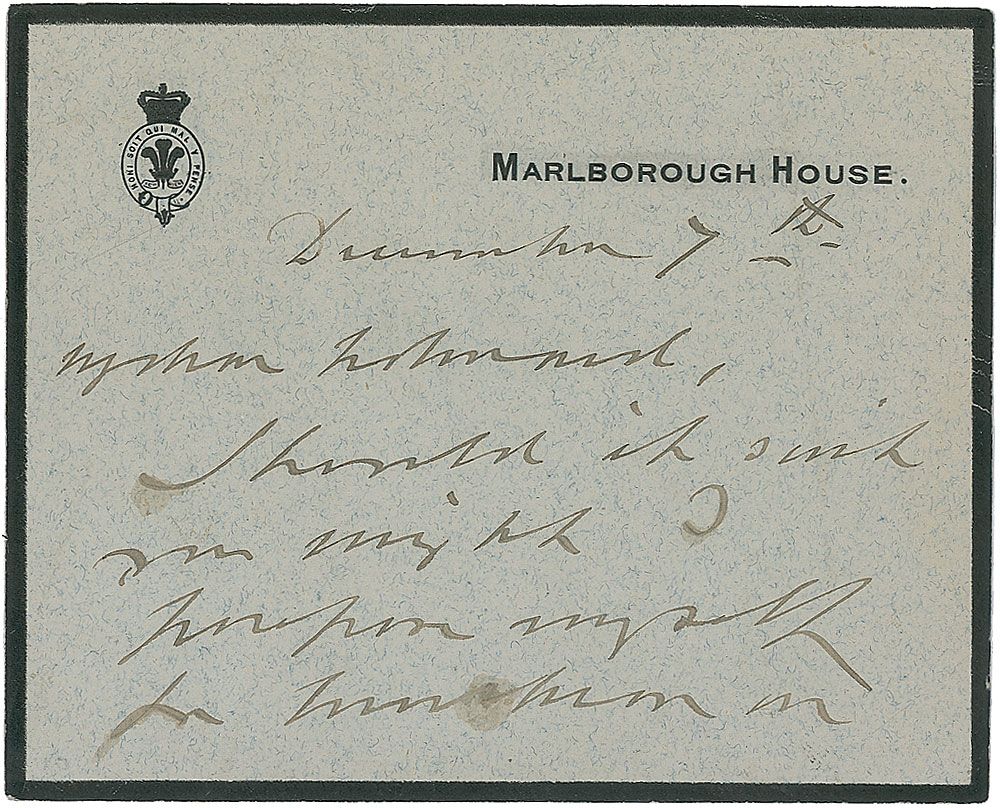 HONI SOIT QUI MAL Y PENSE
MARLBOROUGH HOUSE.
December 7th
My dear
Should it suit
you might I
propose myself
for luncheon on